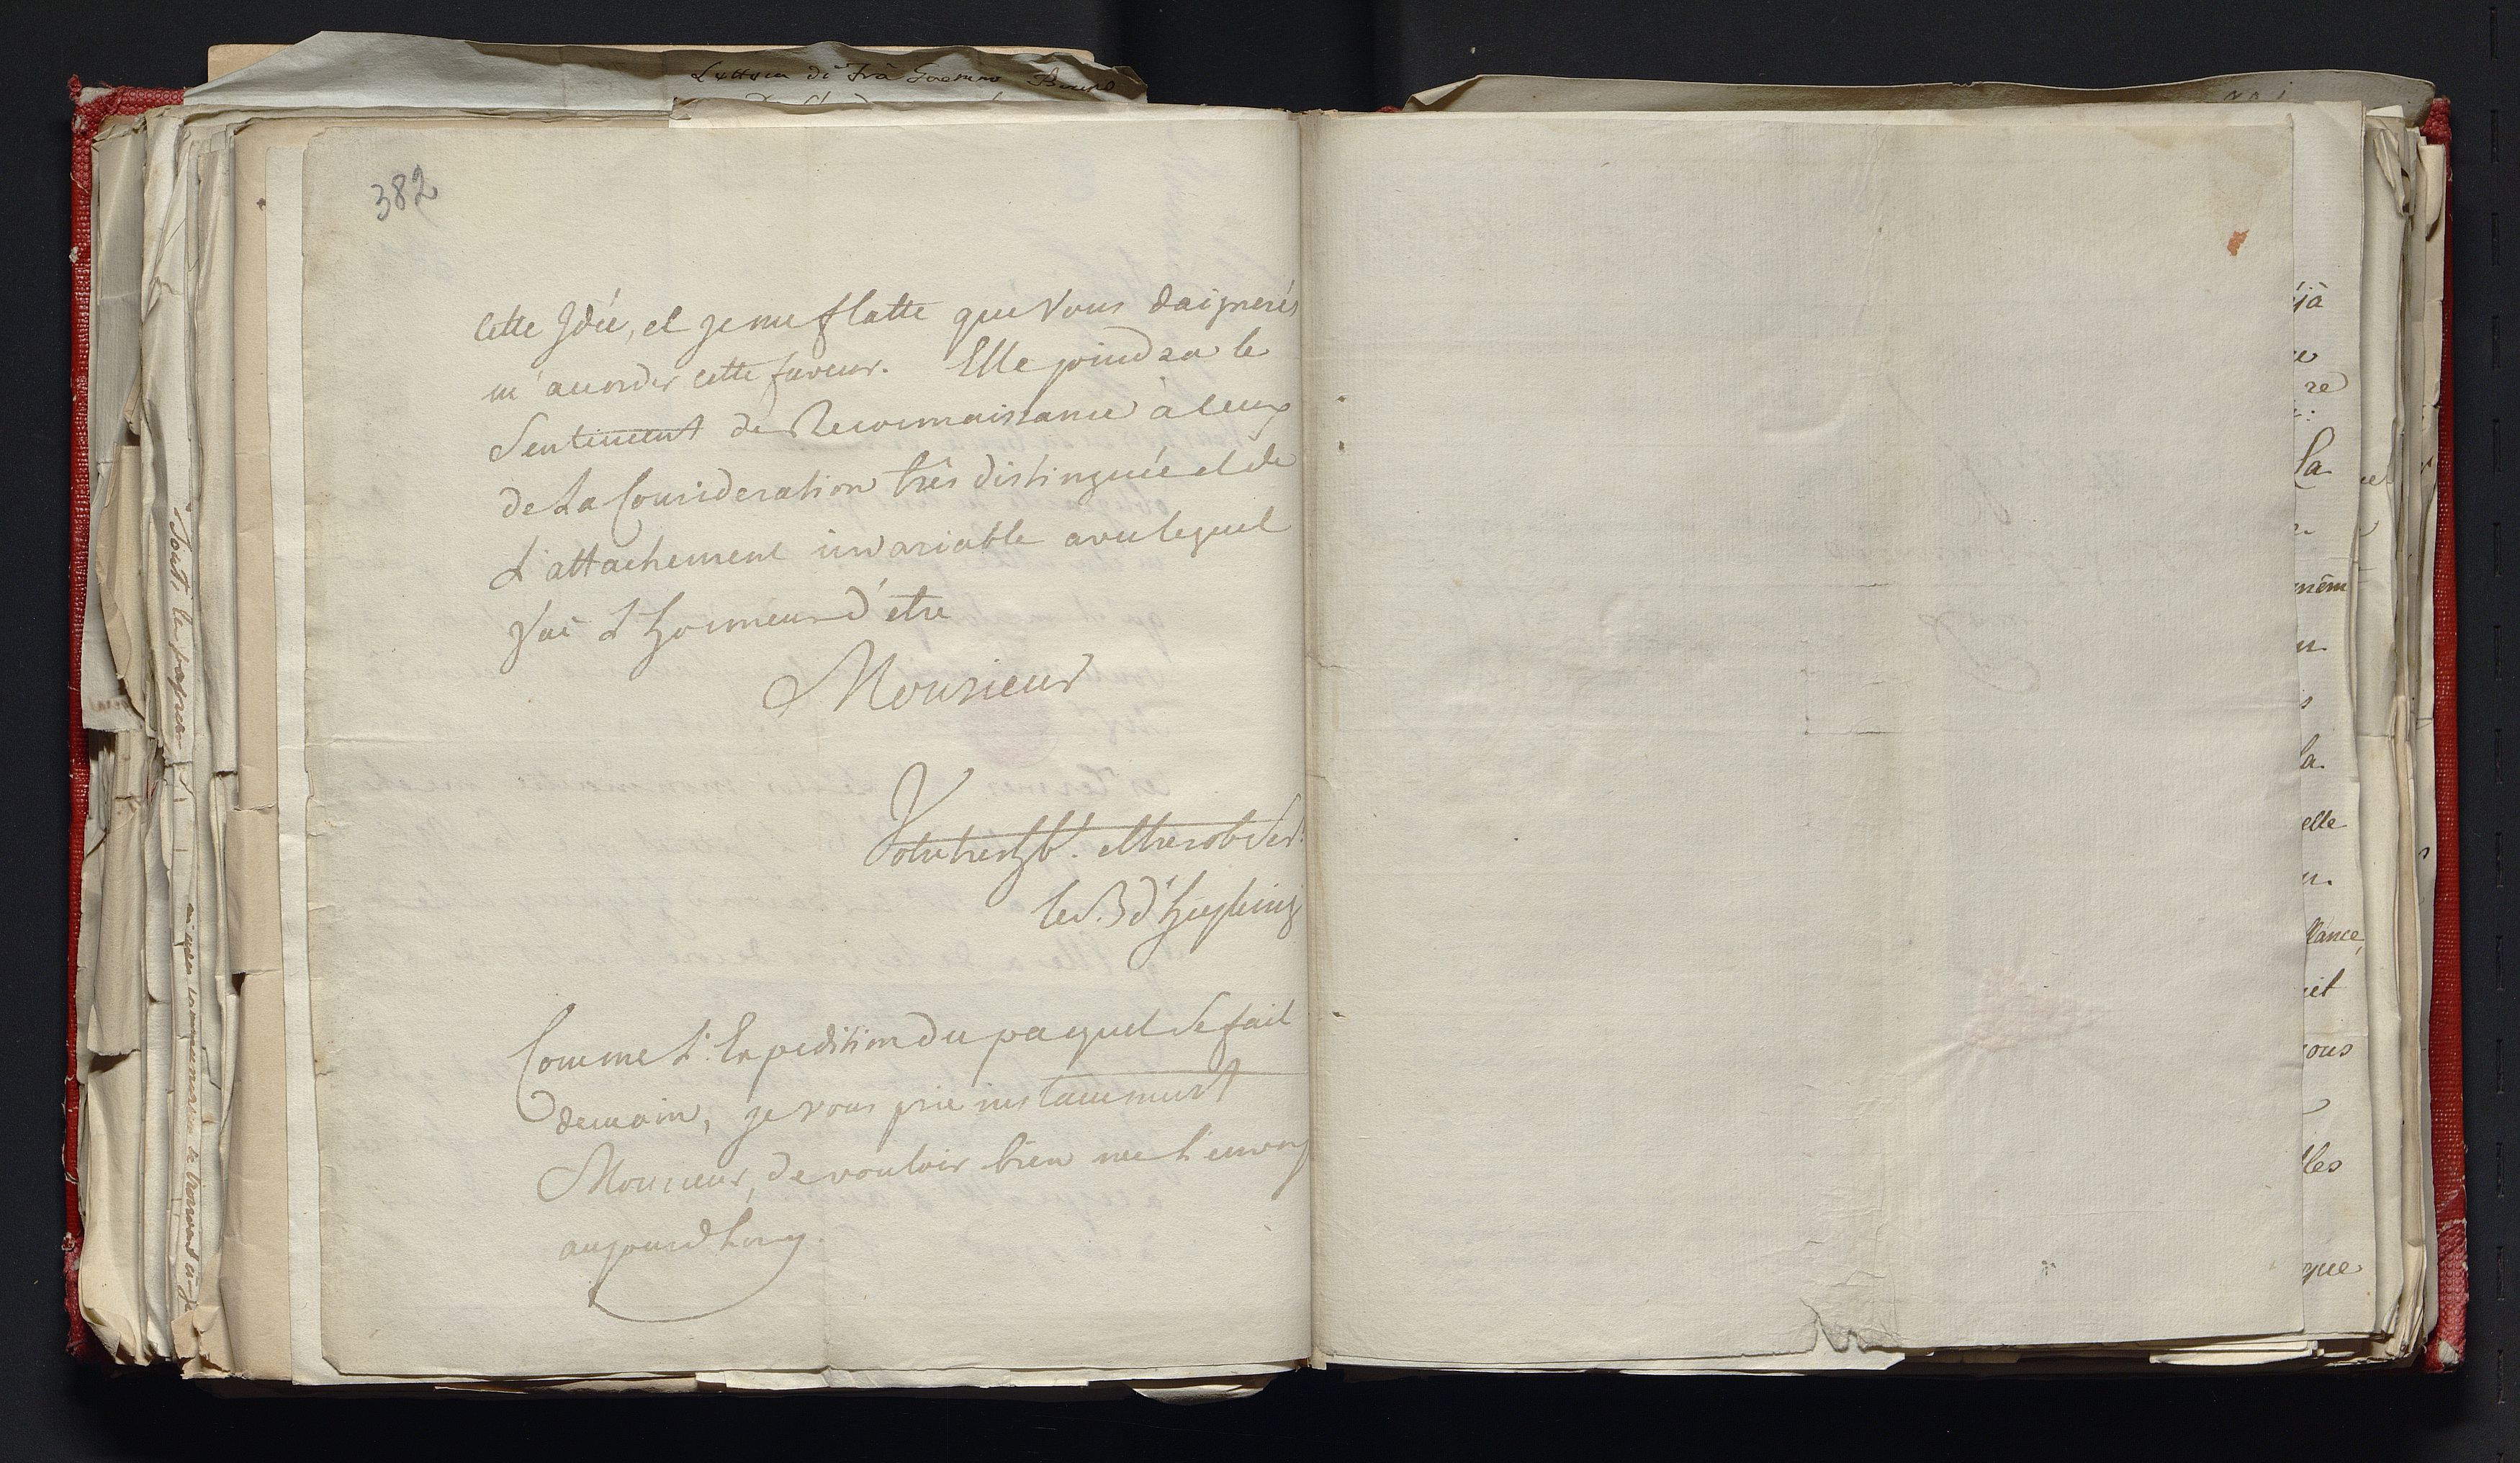 382
cette Idée, et je me flatte que Vous daignerés
m'accorder cette faveur. Elle joindra le
Sentiment de Reconnaissance à ceux
de La Consideration très distinguée et de
L'attachement invariable avec lequel
J'ai L'honneur d'etre
Monsieur
Votre tres hb. et tres ob Ser
le B d'
Comme L'Expedition du paquet Se fait
demain, je vous prie instamment
Monsieur, de vouloir bien me L'envoy
aujourdhuy.
Lettera di Frà
jà
re
La
mêm
la
elle
llance,
ous
lles
que